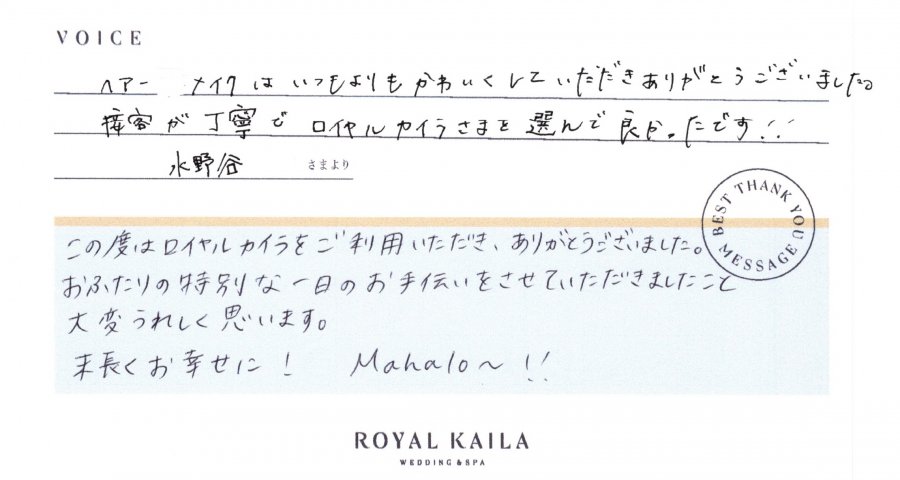 VOICE
ヘアー メイクはいつもよりもかわいくしていただきありがとうございました。
接客が丁寧でロイヤルカイラさまを選んで良かったです!!
水野谷 さまより
BEST THANK YOU MESSAGE
この度はロイヤルカイラをご利用いただき、ありがとうございました。
おふたりの特別な一日のお手伝いをさせていただきましたこと
大変うれしく思います。
末長くお幸せに! Mahalo〜!!
ROYAL KAILA
WEDDING & SPA